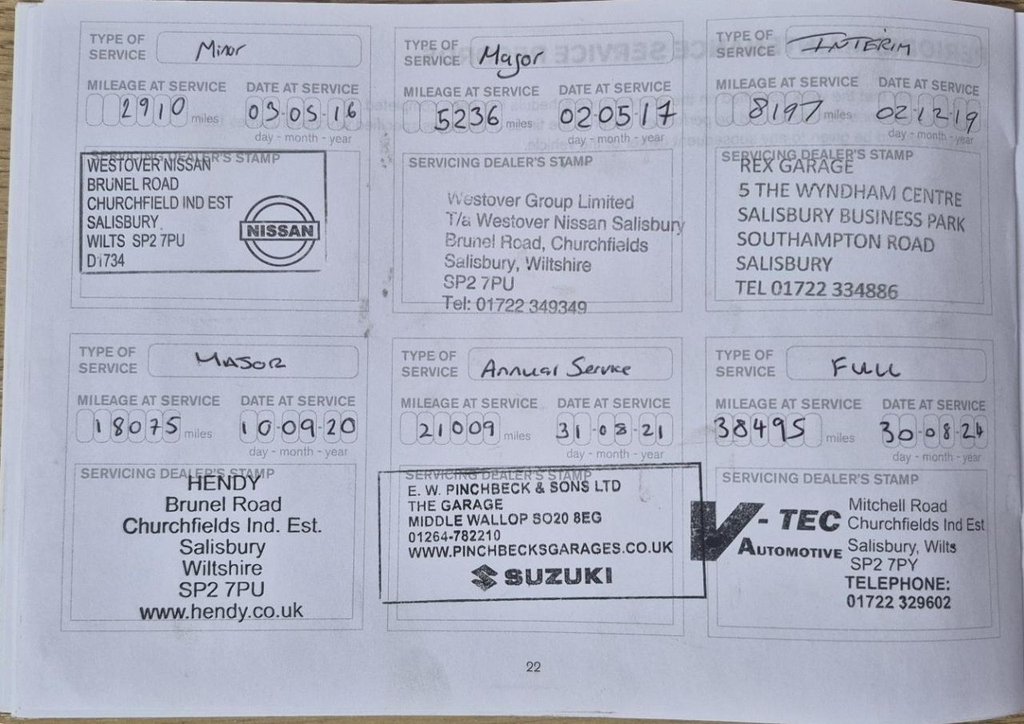 TYPE OF SERVICE Minor
MILEAGE AT SERVICE DATE AT SERVICE
2910 miles 03-05-16
day - month - year
SERVICING DEALER'S STAMP
WESTOVER NISSAN
BRUNEL ROAD
CHURCHFIELD IND EST
SALISBURY
WILTS SP2 7PU
D1734
NISSAN
TYPE OF SERVICE Major
MILEAGE AT SERVICE DATE AT SERVICE
5236 miles 02 05 17
day - month - year
SERVICING DEALER'S STAMP
Westover Group Limited
T/a Westover Nissan Salisbury
Brunel Road, Churchfields
Salisbury, Wiltshire
SP2 7PU
Tel: 01722 349349
TYPE OF SERVICE INTERIM
MILEAGE AT SERVICE DATE AT SERVICE
8197 miles 02-12-19
day - month - year
SERVICING DEALER'S STAMP
REX GARAGE
5 THE WYNDHAM CENTRE
SALISBURY BUSINESS PARK
SOUTHAMPTON ROAD
SALISBURY
TEL 01722 334886
TYPE OF SERVICE MAJOR
MILEAGE AT SERVICE DATE AT SERVICE
18075 miles 10-09-20
day - month - year
SERVICING DEALER'S STAMP
HENDY
Brunel Road
Churchfields Ind. Est.
Salisbury
Wiltshire
SP2 7PU
www.hendy.co.uk
TYPE OF SERVICE Annual Service
MILEAGE AT SERVICE DATE AT SERVICE
21009 miles 31-08-21
day - month - year
SERVICING DEALER'S STAMP
E. W. PINCHBECK & SONS LTD
THE GARAGE
MIDDLE WALLOP SO20 8EG
01264-782210
WWW.PINCHBECKSGARAGES.CO.UK
SUZUKI
TYPE OF SERVICE FULL
MILEAGE AT SERVICE DATE AT SERVICE
38495 miles 30-08-24
day - month - year
SERVICING DEALER'S STAMP
V-TEC
AUTOMOTIVE
Mitchell Road
Churchfields Ind Est
Salisbury, Wilts
SP2 7PY
TELEPHONE:
01722 329602
22